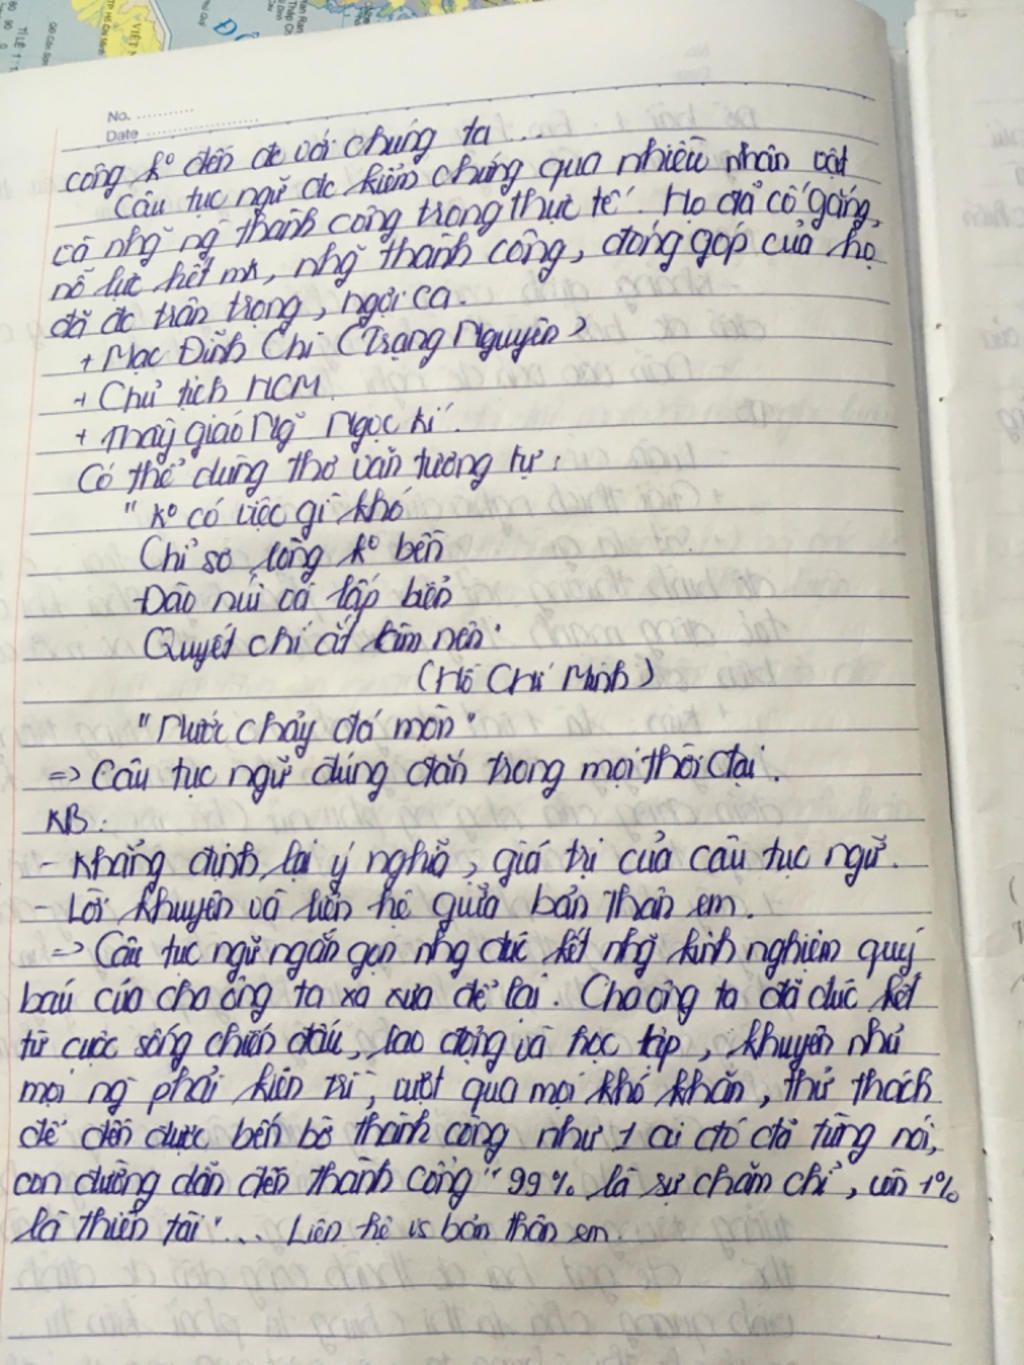 No. ............
Date .....................
công k° đến đc với chúng ta ...
Câu tục ngữ đc kiểm chứng qua nhiều nhân vật
cả nhg~ ng` thành công trong thực tế. Họ đã cố gắng,
nỗ lực hết mh, nhg~ thành công, đóng góp của họ
đã đc trân trọng, ngợi ca.
+ Mạc Đĩnh Chi (Trạng Nguyên)
+ Chủ tịch HCM.
+ Thầy giáo Ng~ Ngọc Kí.
Có thể dùng thơ văn tương tự:
" K° có việc gì khó
Chỉ sợ lòng k° bền
Đào núi và lấp biển
Quyết chí ắt làm nên"
(Hồ Chí Minh)
"Nước chảy đá mòn"
=> Câu tục ngữ đúng đắn trong mọi thời đại.
KB:
- Khẳng định lại ý nghĩa, giá trị của câu tục ngữ.
- Lời khuyên và liên hệ giữa bản thân em.
=> Câu tục ngữ ngắn gọn nhg đúc kết nhg~ kinh nghiệm quý
báu của cha ông ta xa xưa để lại. Cha ông ta đã đúc kết
từ cuộc sống chiến đấu, lao động và học tập, khuyên nhủ
mọi ng` phải kiên trì, vượt qua mọi khó khăn, thử thách
để đến được bến bờ thành công như 1 ai đó đã từng nói,
con đường dẫn đến thành công "99% là sự chăm chỉ, còn 1%
là thiên tài"... Liên hệ vs bản thân em.